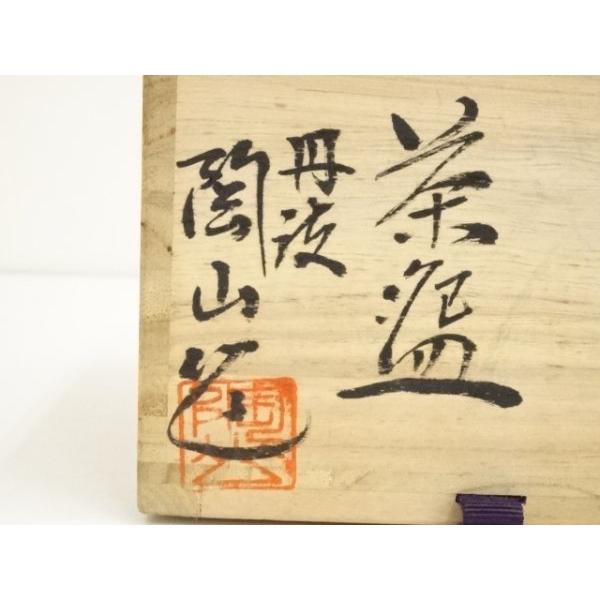 茶盌
丹波
陶山造